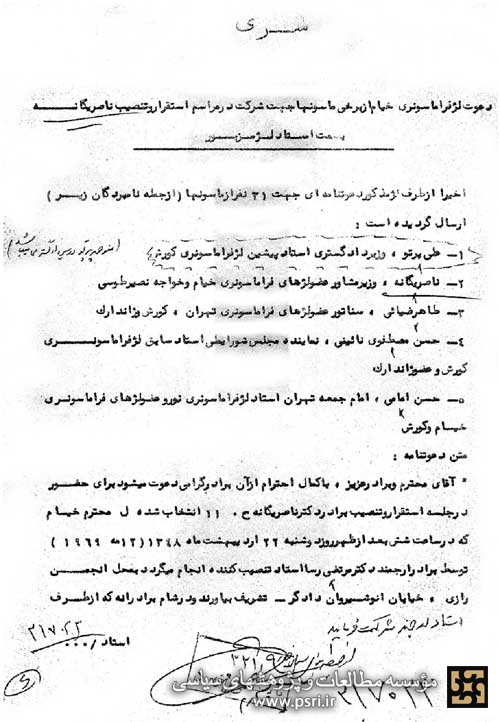 سری
دعوت لژ فراماسونری خیام از برخی ماسونها جهت شرکت در مراسم استقرار و تنصیب ناصر یگانه
بسمت استاد لژ مزبور
اخیرا از طرف لژ مذکور دعوتنامه ای جهت ۳۱ نفر از ماسونها (از جمله نامبردگان زیر)
ارسال گردیده است :
۱ـ علی پرتو ، وزیر دادگستری استاد پیشین لژ فراماسونری کورش
۲ـ ناصر یگانه ، وزیر مشاور عضو لژهای فراماسونری خیام و خواجه نصیر طوسی
۳ـ طاهر ضیائی ، سناتور عضو لژهای فراماسونری تهران ، کورش و ژاندارک
۴ـ حسن مصطفوی نائینی ، نماینده مجلس شورایملی استاد سابق لژ فراماسونری
کورش و عضو ژاندارک
۵ـ حسن امامی ، امام جمعه تهران استاد لژ فراماسونری نور و عضو لژهای فراماسونری
خیام و کورش
متن دعوتنامه :
" آقای محترم و برادر عزیز ، با کمال احترام از آن برادر گرامی دعوت میشود برای حضور
در جلسه استقرار و تنصیب برادر دکتر ناصر یگانه ح . ۱۱ انتخاب شده ل محترم خیام
که در ساعت شش بعد از ظهر روز دوشنبه ۲۲ اردیبهشت ماه ۱۳۴۸ (۱۲ مه ۱۹۶۹)
توسط برادر ارجمند دکتر مرتضی رسا استاد تنصیب کننده انجام میگردد بمحل انجمن
رازی ، خیابان انوشیروان دادگر ـ تشریف بیاورند ودر شام برادرانه که از طرف
استاد لژ شرکت فرمایید
استاد / ۰۰۰
۲۱۷۰۲۲
۳۲۱
۲۱۷۰۲۲
مؤسسه مطالعات و پژوهشهای سیاسی
www.psri.ir